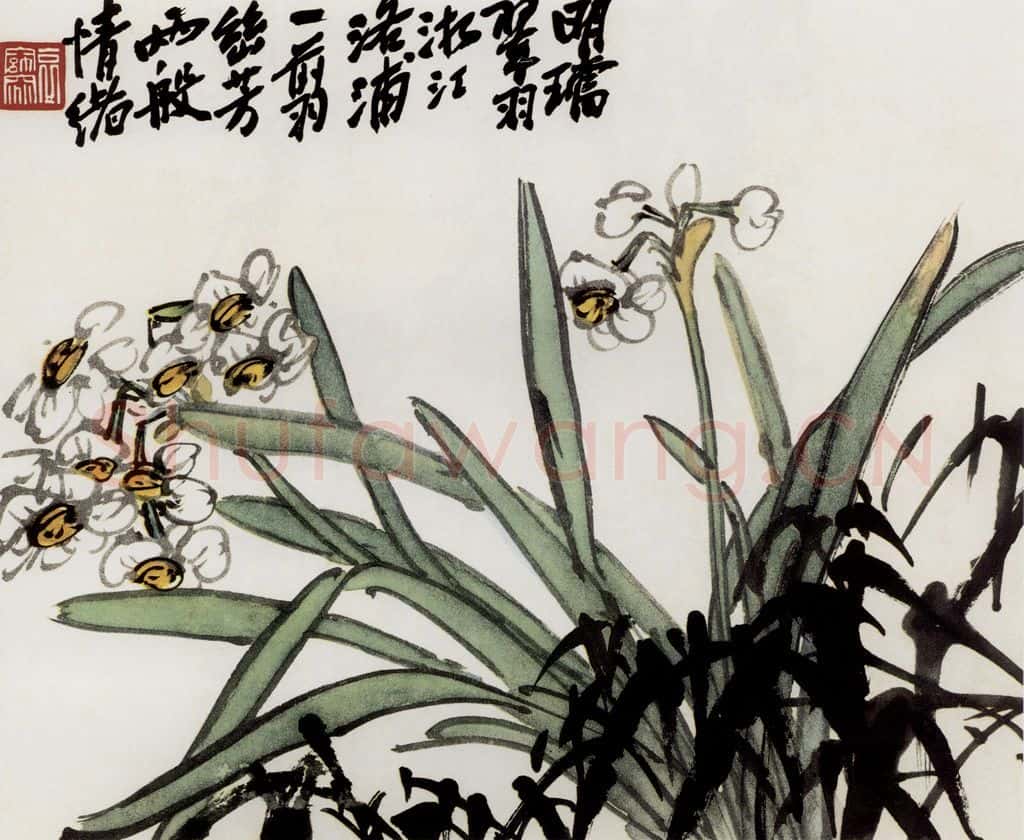 明璫
翠羽
湘江
洛浦
一翦
幽芳
兩般
情緒
Shufawang.CN